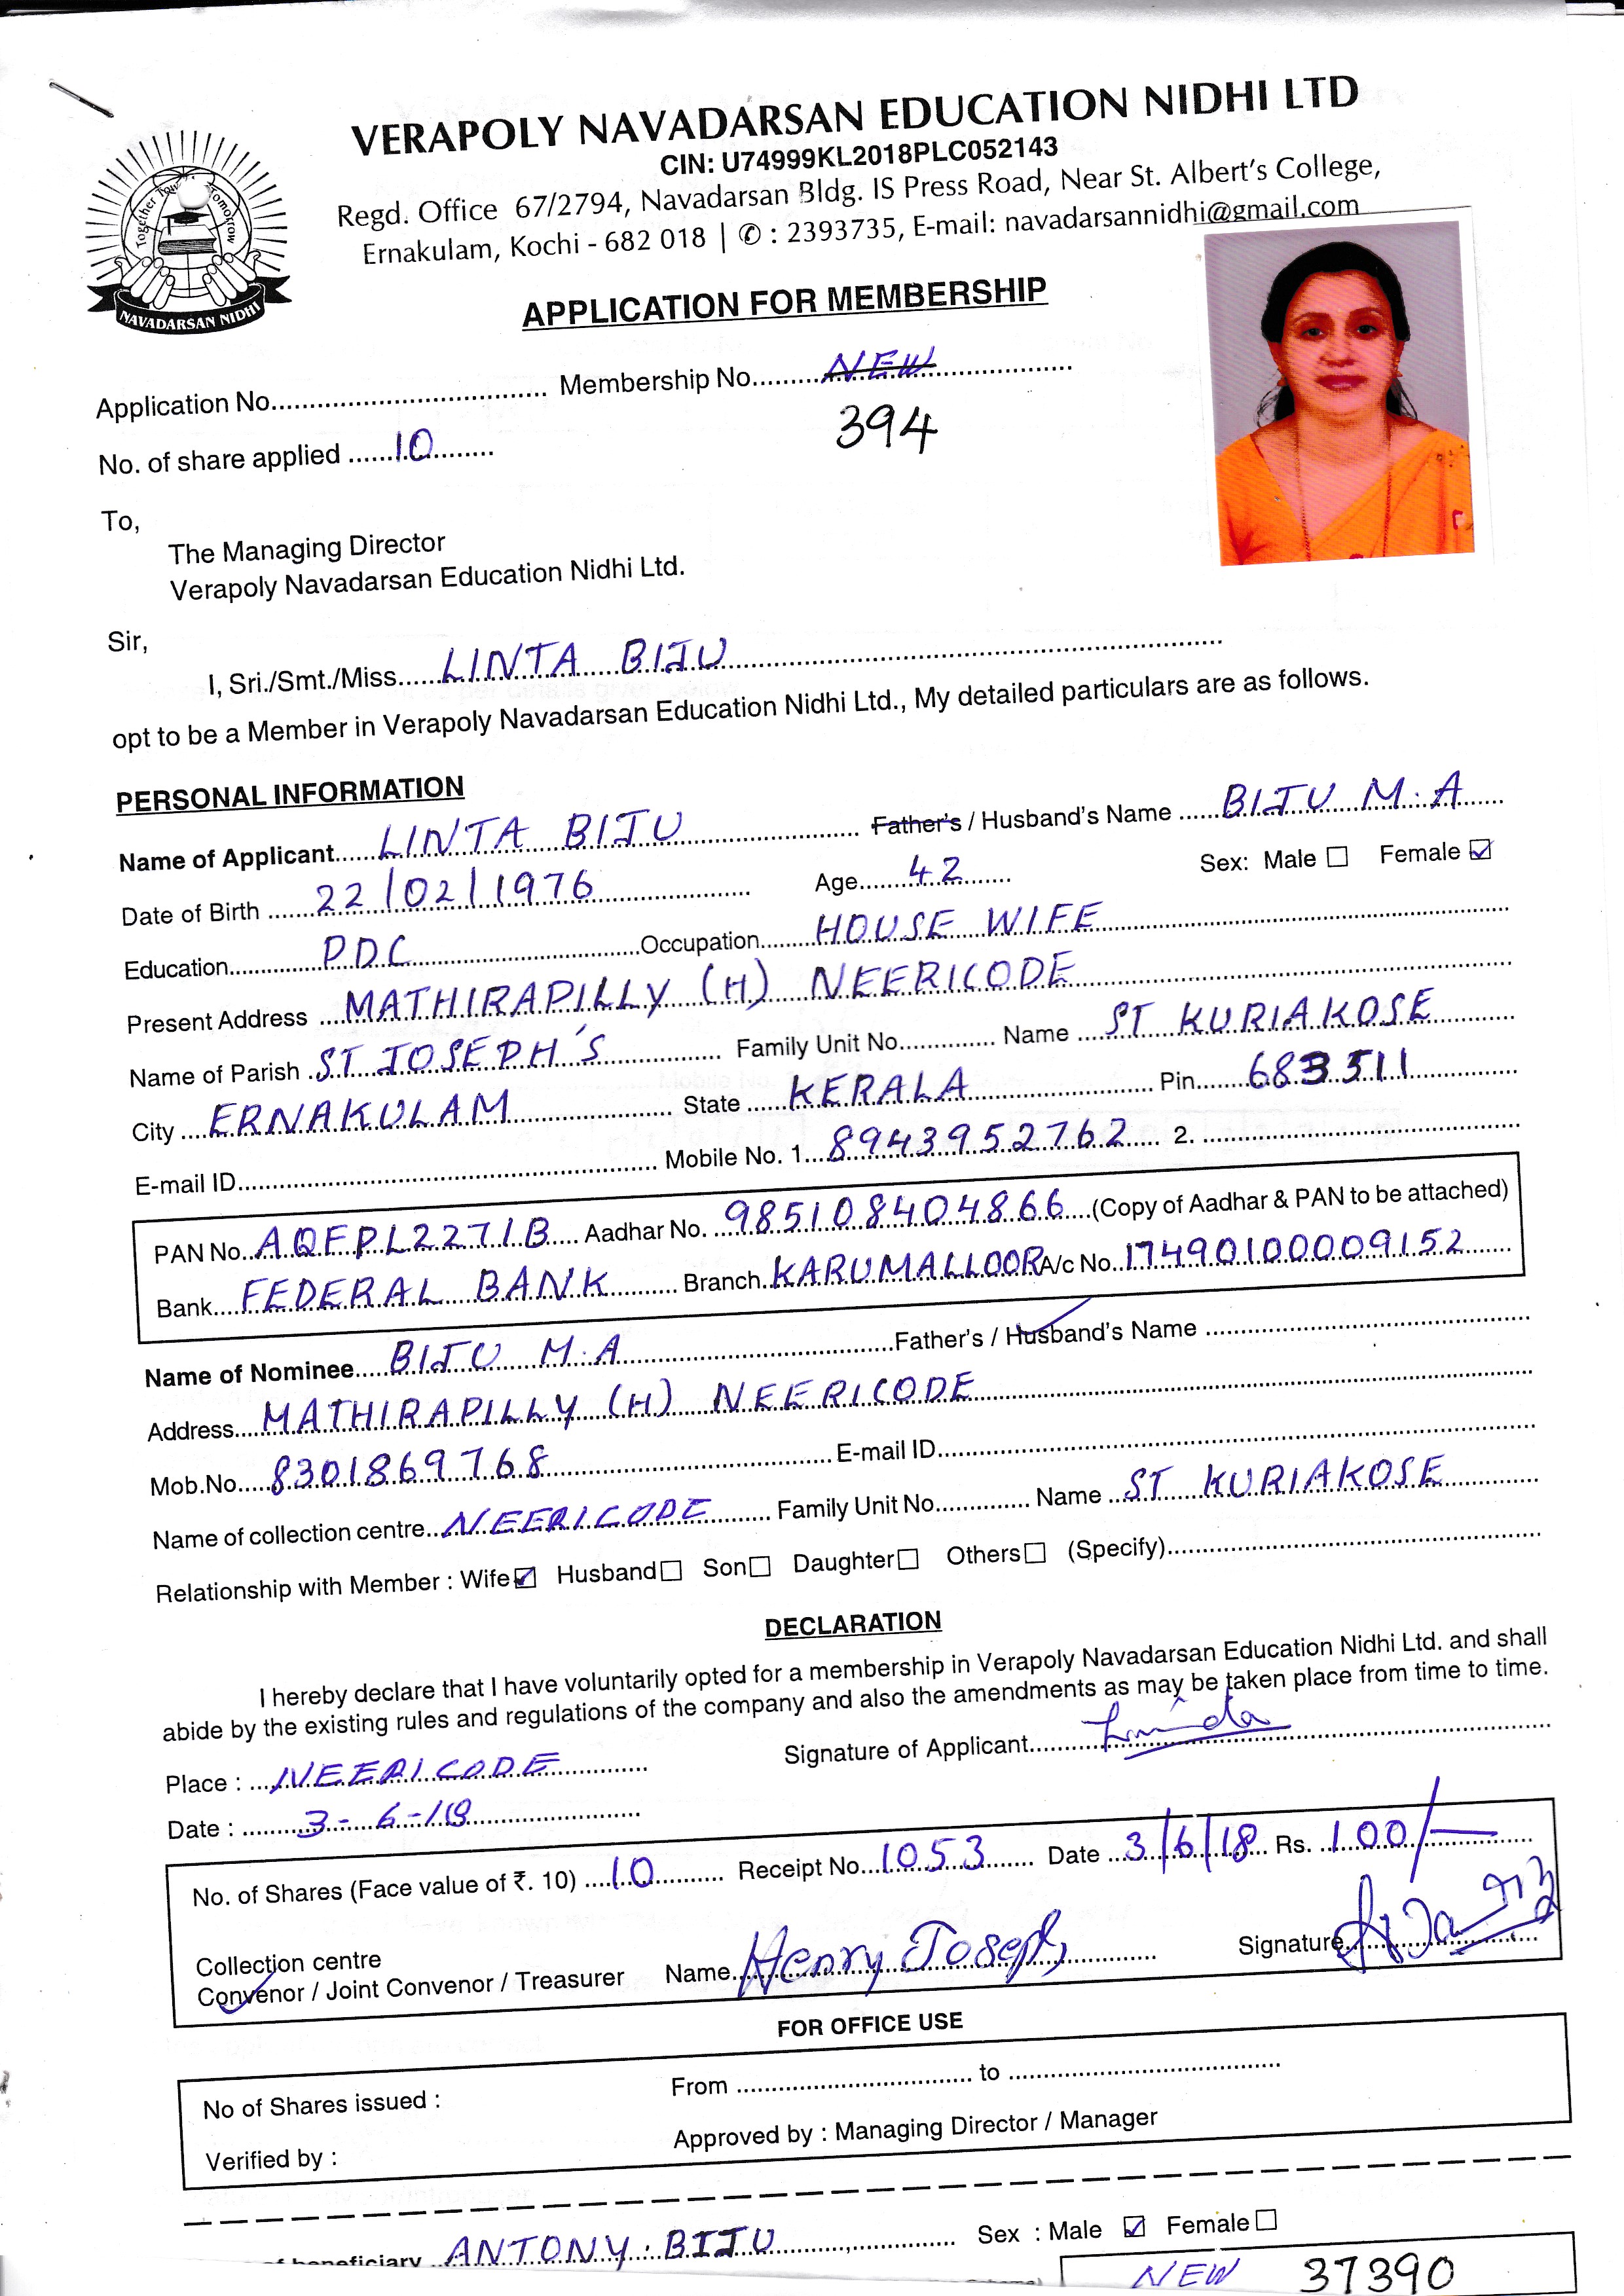 VERAPOLY NAVADARSAN EDUCATION NIDHI LTD
CIN: U74999KL2018PLC052143
Regd. Office 67/2794, Navadarsan Bldg. IS Press Road, Near St. Albert's College,
Ernakulam, Kochi - 682 018 | ✆ : 2393735, E-mail: navadarsannidhi@gmail.com
Together Tomorrow
NAVADARSAN NIDHI
APPLICATION FOR MEMBERSHIP
Application No. Membership No. NEW
394
No. of share applied 10
To,
The Managing Director
Verapoly Navadarsan Education Nidhi Ltd.
Sir,
I, Sri./Smt./Miss. LINTA BIJU
opt to be a Member in Verapoly Navadarsan Education Nidhi Ltd., My detailed particulars are as follows.
PERSONAL INFORMATION
Name of Applicant LINTA BIJU Father's / Husband's Name BIJU M.A
Date of Birth 22/02/1976 Age 42 Sex: Male ☐ Female ☑
Education P.D.C Occupation HOUSE WIFE
Present Address MATHIRAPILLY (H) NEERICODE
Name of Parish ST JOSEPH'S Family Unit No. Name ST KURIAKOSE
City ERNAKULAM State KERALA Pin 683511
E-mail ID Mobile No. 1. 8943952762 2.
PAN No. AQFPL2271B Aadhar No. 985108404866 (Copy of Aadhar & PAN to be attached)
Bank FEDERAL BANK Branch KARUMALLOOR A/c No. 17490100009152
Name of Nominee BIJU M.A Father's / Husband's Name
Address MATHIRAPILLY (H) NEERICODE
Mob.No. 8301869768 E-mail ID
Name of collection centre NEERICODE Family Unit No. Name ST KURIAKOSE
Relationship with Member : Wife ☑ Husband ☐ Son ☐ Daughter ☐ Others ☐ (Specify)
DECLARATION
I hereby declare that I have voluntarily opted for a membership in Verapoly Navadarsan Education Nidhi Ltd. and shall
abide by the existing rules and regulations of the company and also the amendments as may be taken place from time to time.
Signature of Applicant
Place : NEERICODE
Date : 3-6-18
No. of Shares (Face value of ₹. 10) 10 Receipt No. 1053 Date 3/6/18 Rs. 100/-
Collection centre
Convenor / Joint Convenor / Treasurer Name Henry Joseph Signature
FOR OFFICE USE
No of Shares issued : From to
Verified by : Approved by : Managing Director / Manager
beneficiary ANTONY. BIJU Sex : Male ☑ Female ☐
NEW 37390